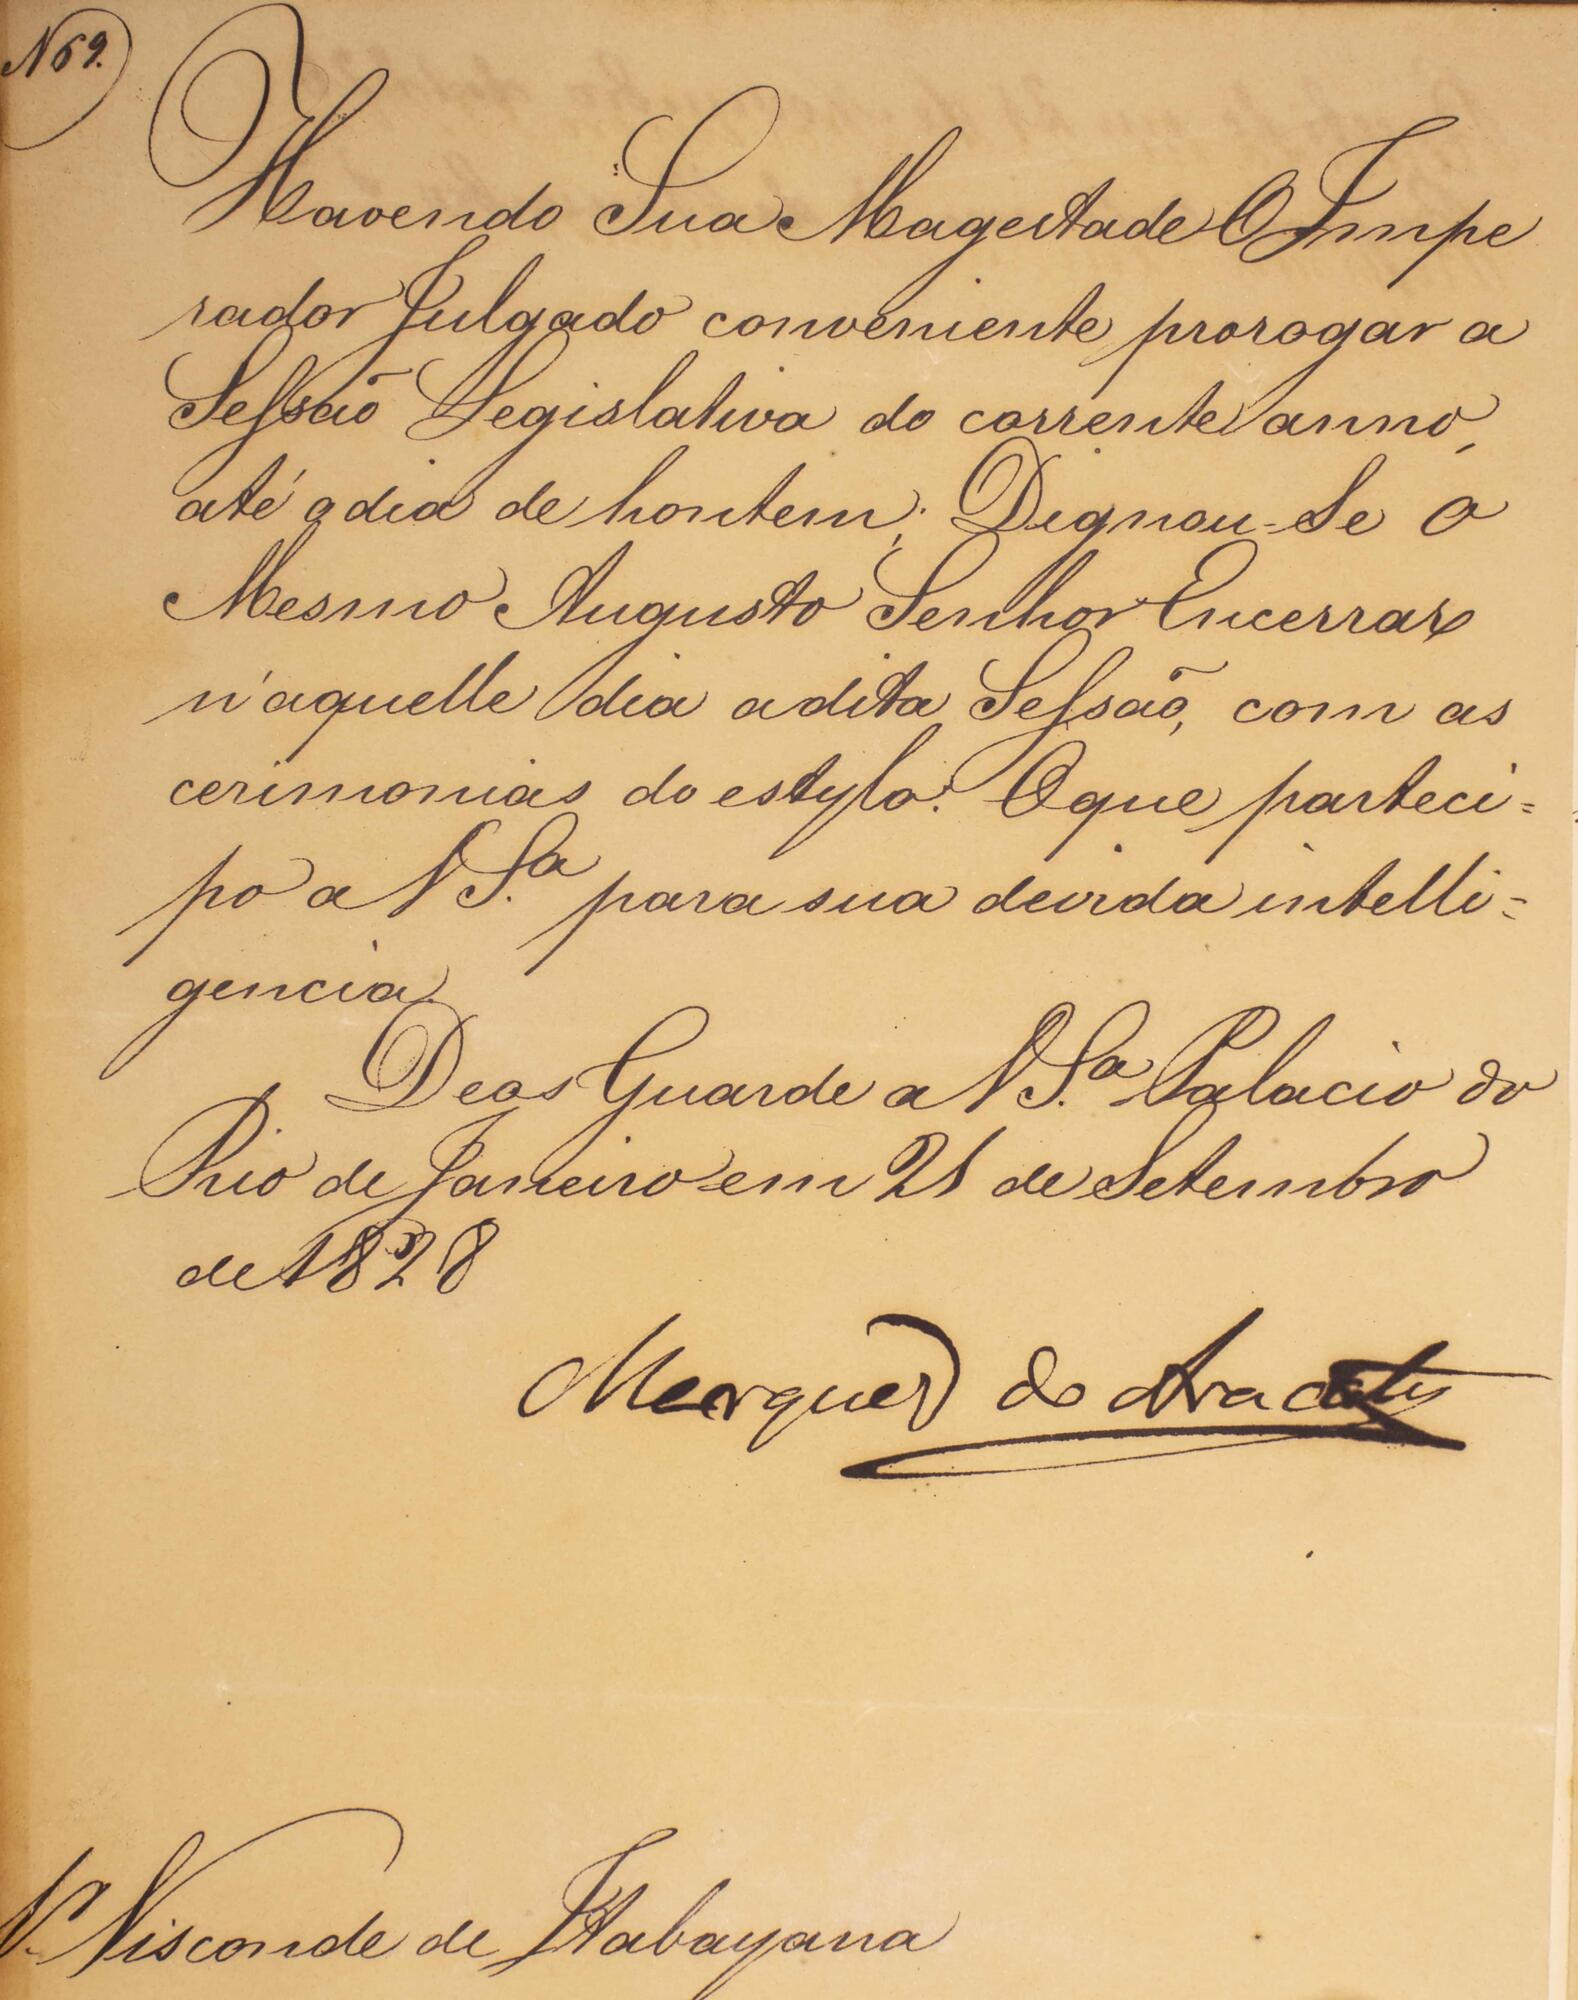 N 69.
Havendo Sua Magestade O Impe
rador Julgado conveniente prorogar a
Sessão Legislativa do corrente anno,
até o dia de hontem; Dignou-Se O
Mesmo Augusto Senhor Encerrar
n'aquelle dia a dita Sessão, com as
cerimonias do estylo. O que parteci=
po a V S.ª para sua devida intelli=
gencia.
Deos Guarde a V S.ª Palacio do
Rio de Janeiro em 21 de Setembro
de 1828
Marquez do Aracaty
Visconde de Itabayana